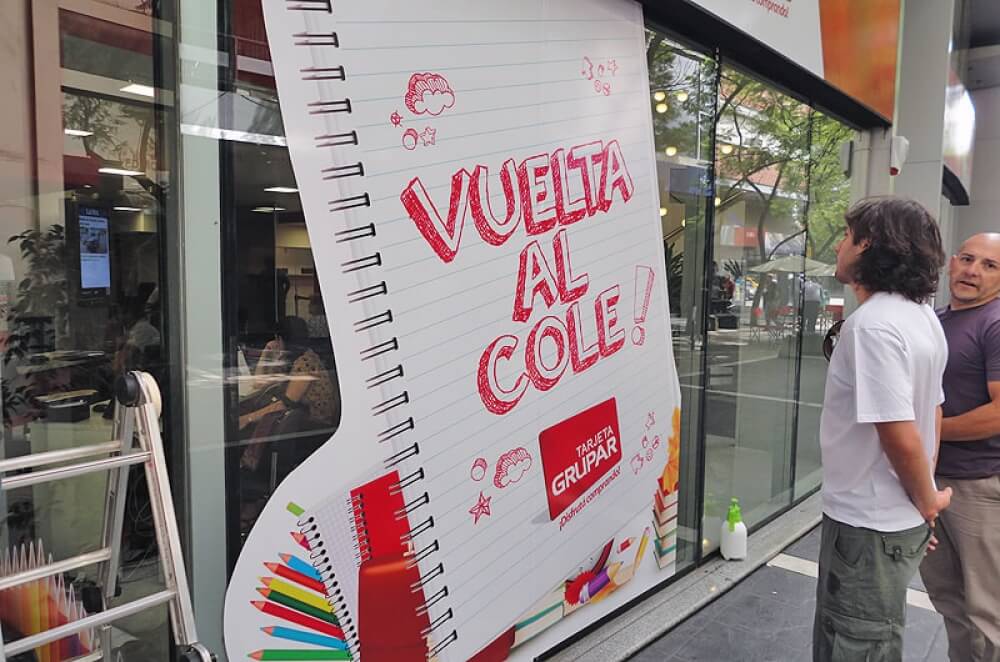 comprando!
VUELTA
AL
COLE!
TARJETA
GRUPAR
¡Disfrutá comprando!